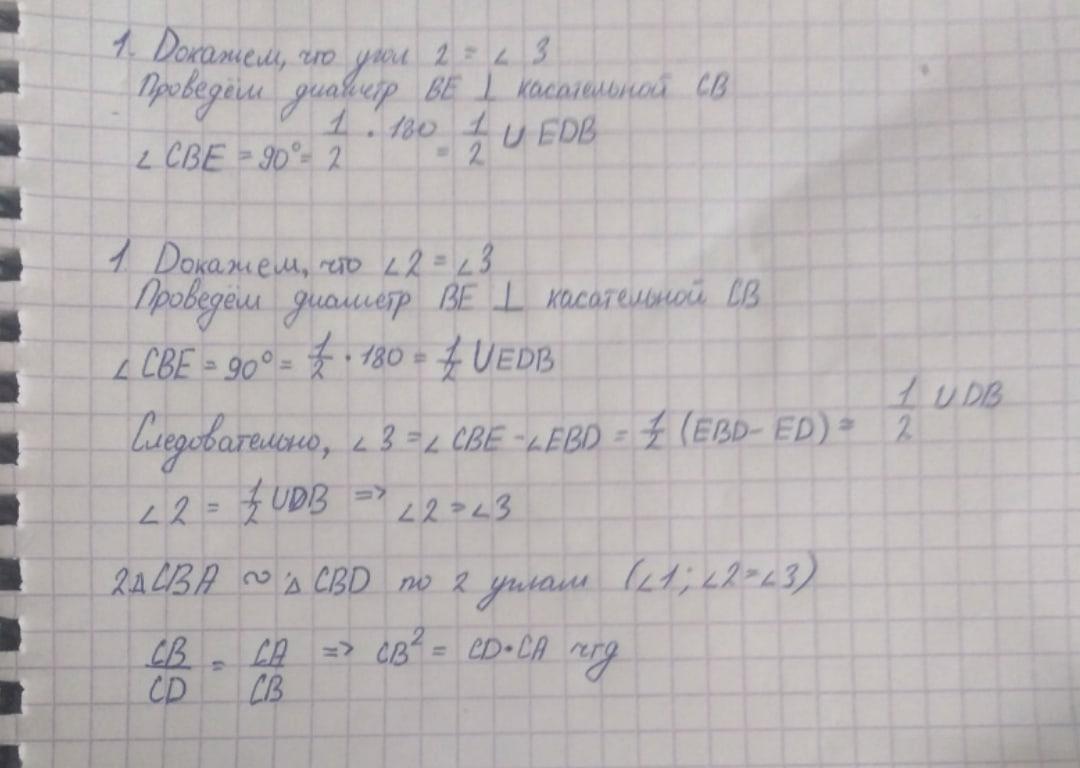 1. Докажем, что угол 2 = ∠ 3
Проведём диаметр BE ⊥ касательной CB
∠ CBE = 90° = 1/2 · 180 = 1/2 ∪ EDB
1 Докажем, что ∠2 = ∠3
Проведём диаметр BE ⊥ касательной CB
∠ CBE = 90° = 1/2 · 180 = 1/2 ∪EDB
Следовательно, ∠3 = ∠ CBE - ∠EBD = 1/2 (EBD - ED) = 1/2 ∪ DB
∠2 = 1/2 ∪DB => ∠2 = ∠3
2 △CBA ~ △ CBD по 2 углам (∠1; ∠2=∠3)
CB/CD = CA/CB => CB² = CD·CA чтд